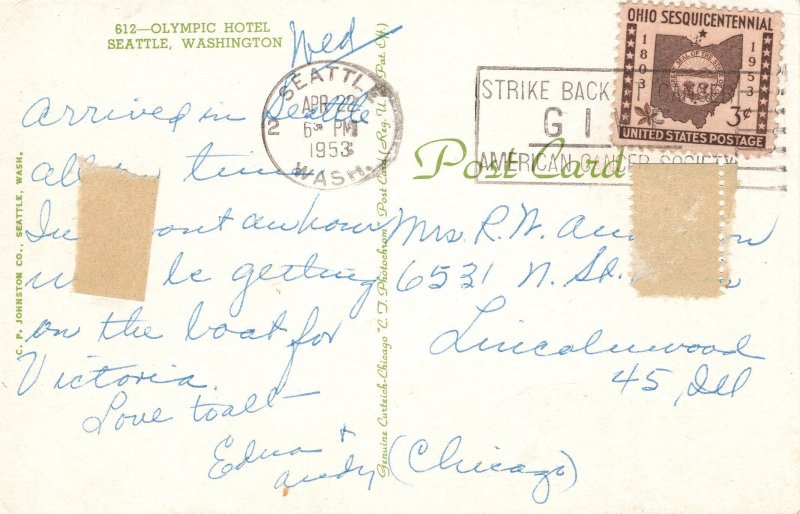 612—OLYMPIC HOTEL
SEATTLE, WASHINGTON
Wed
SEATTLE
2
APR 22
6 PM
1953
WASH.
STRIKE BACK
GI
AMERICAN CANCER SOCIETY
OHIO SESQUICENTENNIAL
1803
1953
3¢
UNITED STATES POSTAGE
Post Card
Arrived in Seattle
time
In about an hour
be getting
on the boat for
Victoria.
Love to all—
Edna +
Andy
Mrs. R. W.
6531 N. St.
Lincolnwood
45, Ill
(Chicago)
C. P. JOHNSTON CO., SEATTLE, WASH.
Genuine Curteich-Chicago "C. T. Photochrom" Post Card (Reg. U. S. Pat. Off.)